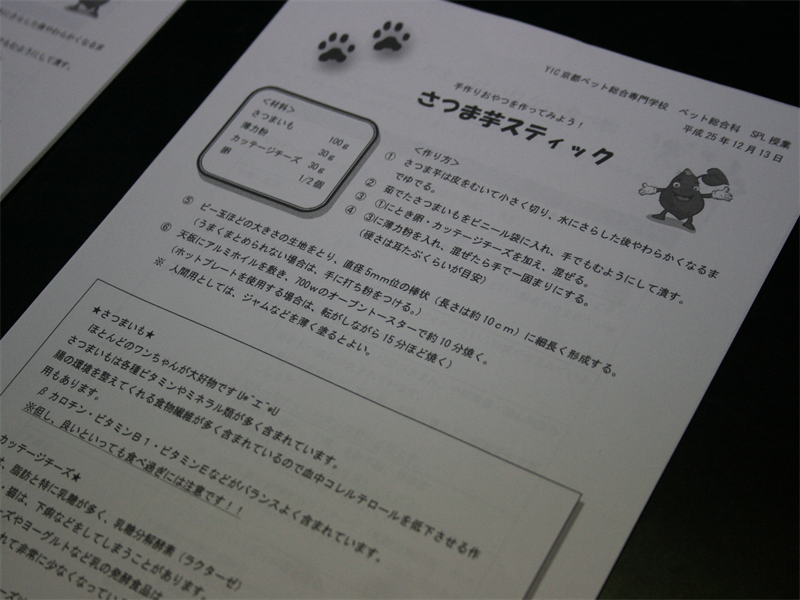 YIC京都ペット総合専門学校　ペット総合科　SPL授業
平成25年12月13日
手作りおやつを作ってみよう！
さつま芋スティック
<材料>
さつまいも　100g
薄力粉　30g
カッテージチーズ　30g
卵　1/2個
<作り方>
① さつま芋は皮をむいて小さく切り、水にさらした後やわらかくなるま
でゆでる。
② 茹でたさつまいもをビニール袋に入れ、手でもむようにして潰す。
③ ①にとき卵・カッテージチーズを加え、混ぜる。
④ ③に薄力粉を入れ、混ぜたら手で一固まりにする。
(硬さは耳たぶくらいが目安)
⑤ ビー玉ほどの大きさの生地をとり、直径5mm位の棒状（長さは約10cm）に細長く形成する。
(うまくまとめられない場合は、手に打ち粉をつける。)
⑥ 天板にアルミホイルを敷き、700wのオーブントースターで約10分焼く。
(ホットプレートを使用する場合は、転がしながら15分ほど焼く)
※ 人間用としては、ジャムなどを薄く塗るとよい。
★さつまいも★
ほとんどのワンちゃんが大好物ですU*´エ`*U
さつまいもは各種ビタミンやミネラル類が多く含まれています。
腸の環境を整えてくれる食物繊維が多く含まれているので血中コレルテロールを低下させる作
用もあります。
βカロチン・ビタミンB1・ビタミンEなどがバランスよく含まれています。
※但し、良いといっても食べ過ぎには注意です！！
カッテージチーズ★
、脂肪と特に乳糖が多く、乳糖分解酵素（ラクターゼ）
・猫は、下痢などをしてしまうことがあります。
ズやヨーグルトなど乳の発酵食品は
れて非常に少なくなってい
さらした後やわらかくなるま
もむようにして潰す。